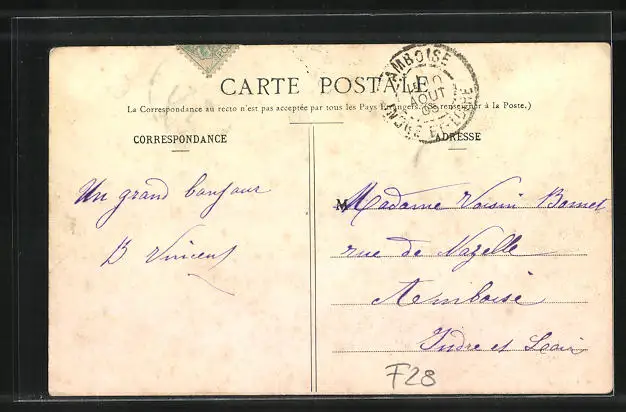 CARTE POSTALE
La Correspondance au recto n'est pas acceptée par tous les Pays Etrangers. (Se renseigner à la Poste.)
CORRESPONDANCE
ADRESSE
AMBOISE
AOUT
INDRE-ET-LOIRE
Un grand bonjour
B Vincent
Madame Voisin Bonnet
rue de Nazelle
Amboise
Indre et Loire
F28